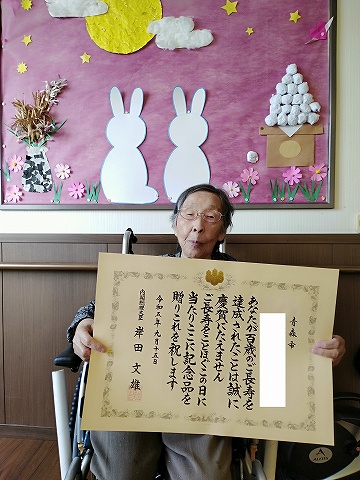 青森
あなたが百歳のご長寿を
達成されたことは誠に
慶賀にたえません
ご長寿をことほぐこの日に
当たりここに記念品を
贈りこれを祝します
令和五年九月十五日
内閣総理大臣 岸田文雄